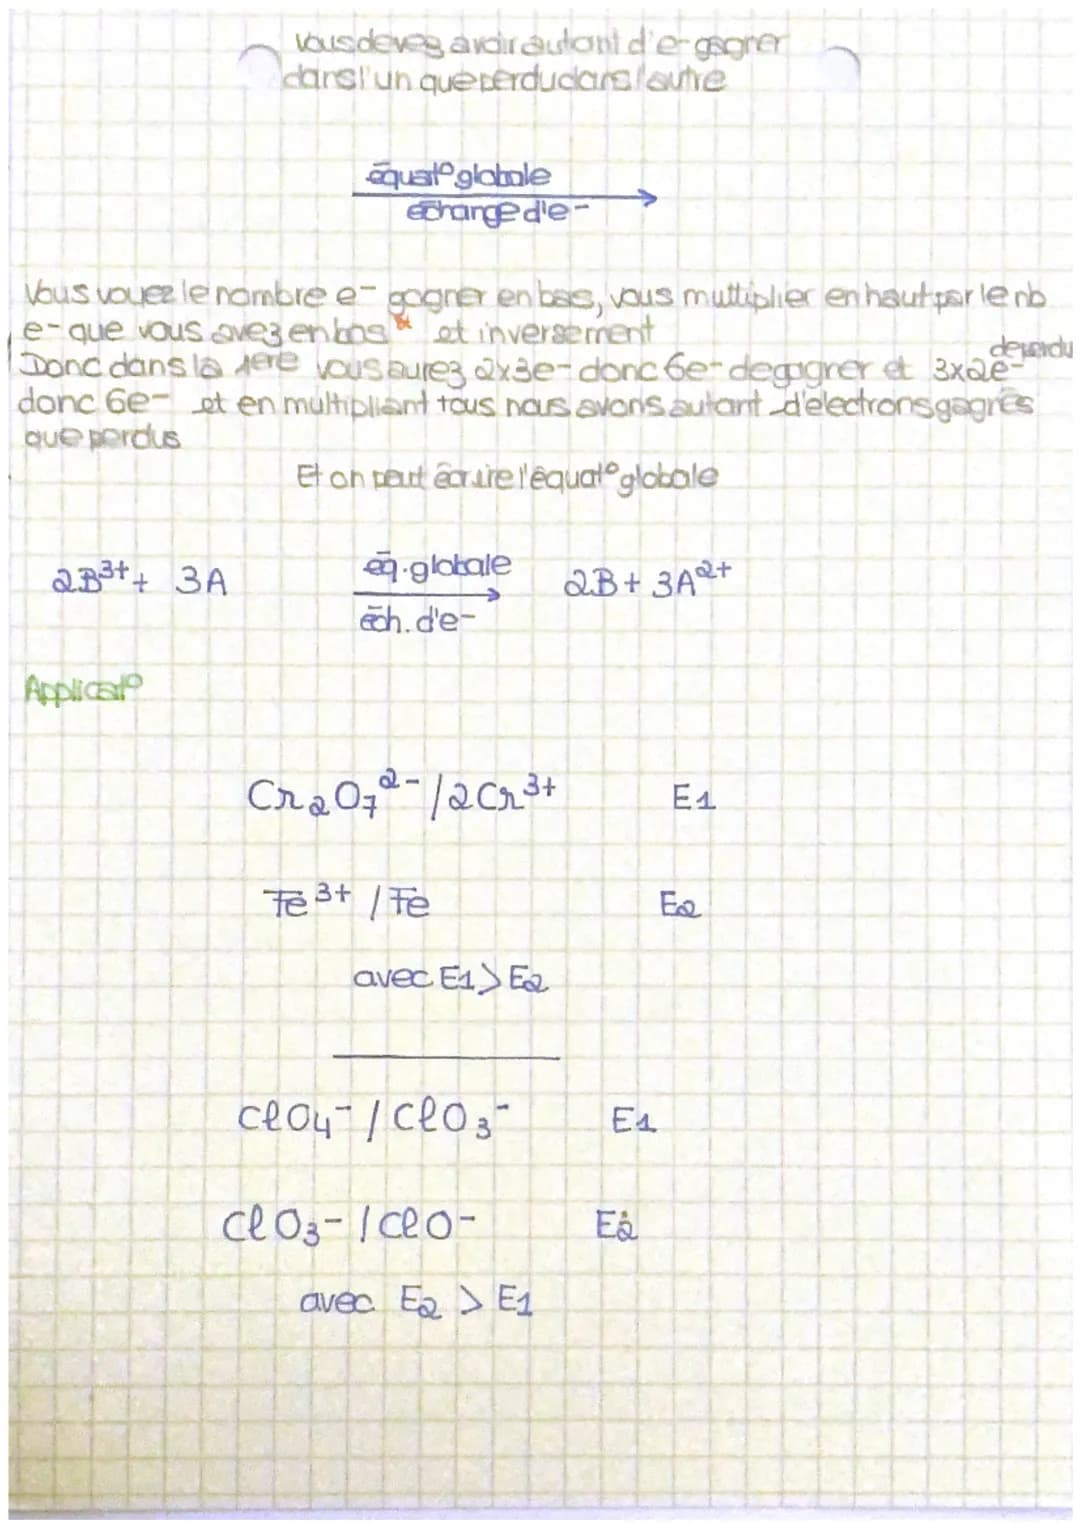 Vous devez avoir autant d'e- gagner
dans l'un que perdu dans l'autre
équat° globale
échange d'e-
Vous voyez le nombre e- gagner en bas, vous multiplier en haut par le nb
e- que vous avez en bas et inversement
Donc dans la 1ere vous aurez 2x3e- donc 6e- de gagner et 3x2e- de perdu
donc 6e- et en multipliant tous nous avons autant d'électrons gagnés
que perdus
Et on peut écrire l'équat° globale
2B³⁺ + 3A éq. globale 2B + 3A²⁺
éch. d'e-
Applicat°
Cr₂O₇²⁻ / 2Cr³⁺ E1
Fe³⁺ / Fe E2
avec E1 > E2
ClO₄⁻ / ClO₃⁻ E1
ClO₃⁻ / ClO⁻ E2
avec E2 > E1